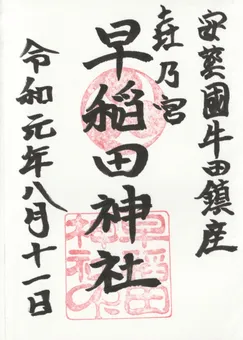 安藝國牛田鎮座
乃宮
早稲田神社
令和元年八月十一日
早稲田
神社印